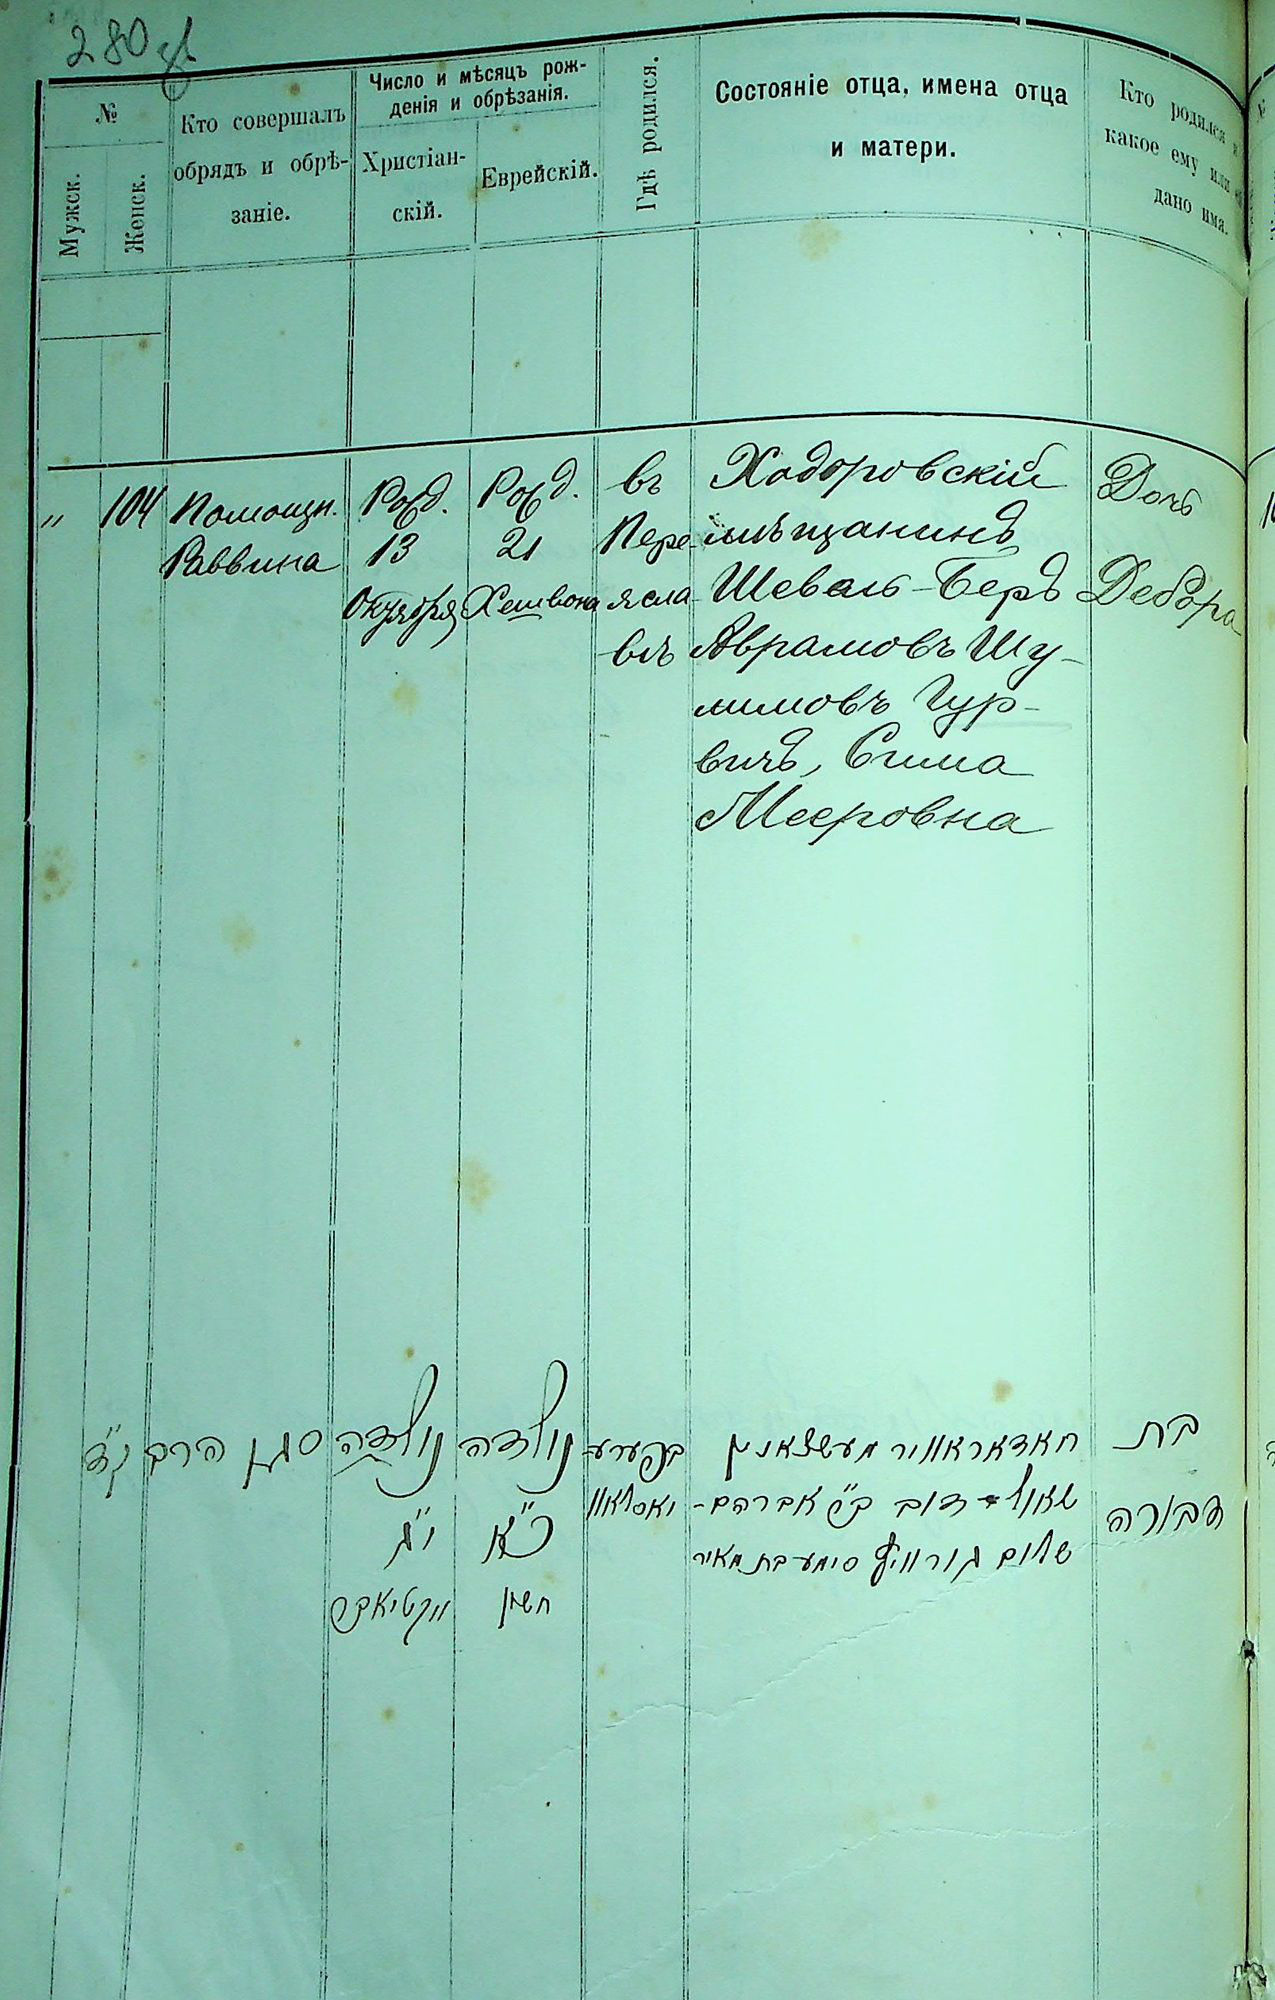 280
№
Мужск.
Женск.
Кто совершалъ
обрядъ и обрѣ-
заніе.
Число и мѣсяцъ рож-
денія и обрѣзанія.
Христіан-
скій.
Еврейскій.
Гдѣ родился.
Состояніе отца, имена отца
и матери.
Кто родился и
какое ему или ей
дано имя.
" 104
Помощн.
Раввина
Рожд.
13
Октября
Рожд.
21
Хешвона
въ
Пере-
ясла-
влѣ
Ходоровскій
мѣщанинъ
Шевель-Беръ
Аврамовъ Шу-
лимовъ Гур-
вичъ, Сима
Мееровна
Дочь
Дебора
ק״ד
סגן הרב
נולדה
י״ג
אקטיאבר
נולדה
כ״א
חשון
בפערע
יאסלאוו
חאדאראוויר מעשצאנין
שאול־דוב ב״ר אברהם־
שלום גורוויץ סימע בת מאיר
בת
דבורה